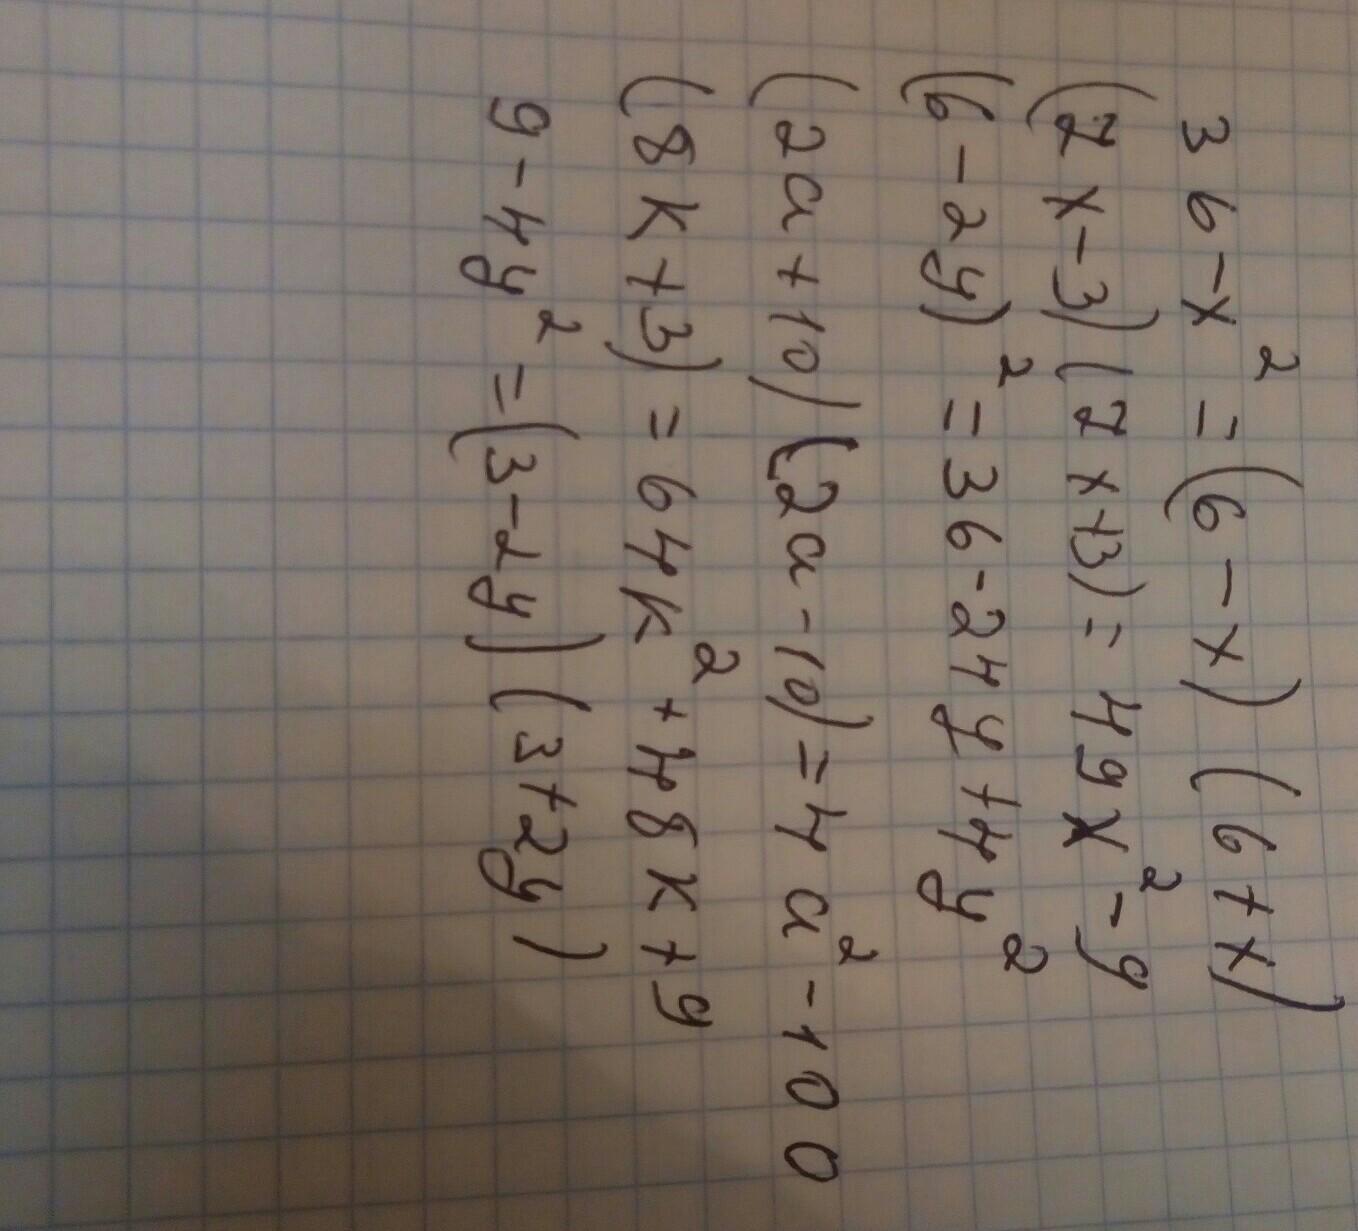 36-x²=(6-x)(6+x)
(7x-3)(7x+3)=49x²-9
(6-2y)²=36-24y+4y²
(2a+10)(2a-10)=4a²-100
(8k+3)=64k²+48k+9
9-4y²=(3-2y)(3+2y)